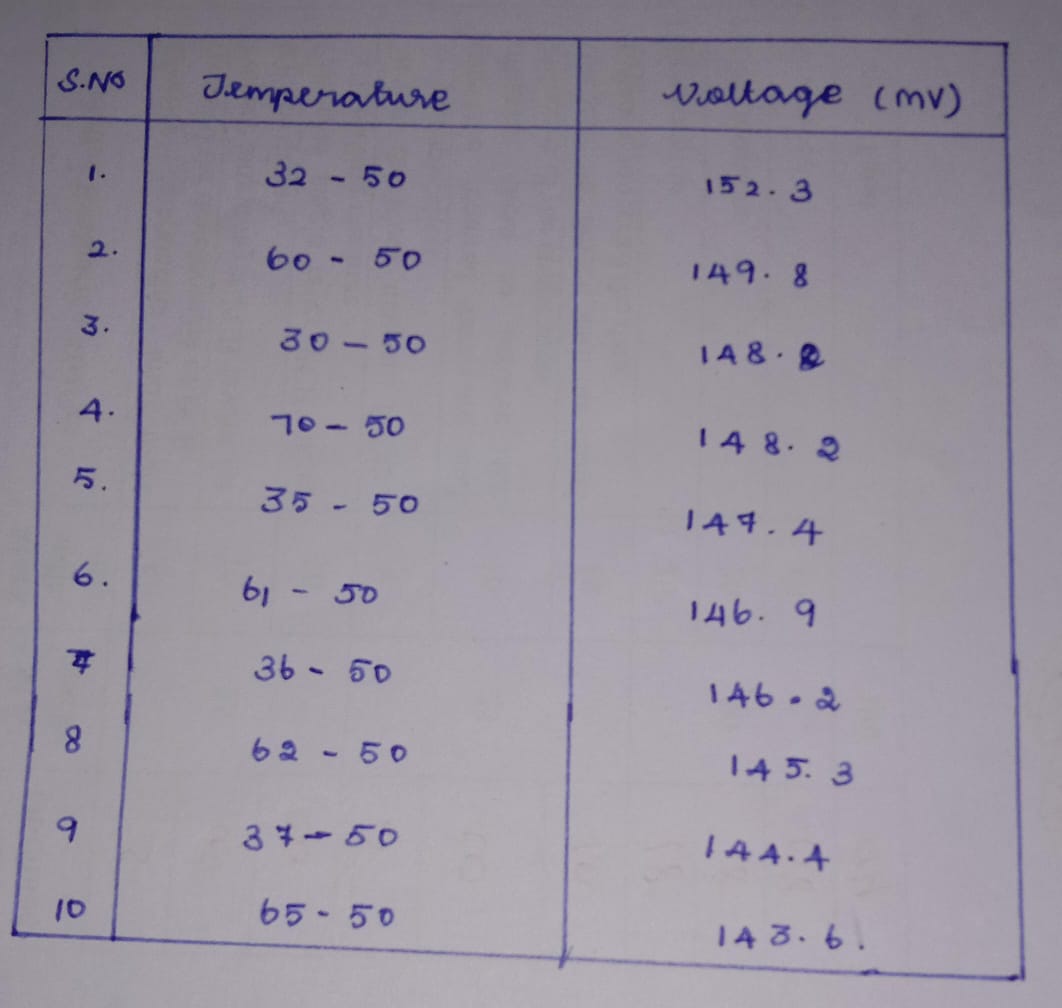 S.No Temperature Voltage (mV)
1. 32 - 50 152.3
2. 60 - 50 149.8
3. 30 - 50 148.2
4. 70 - 50 148.2
5. 35 - 50 147.4
6. 61 - 50 146.9
7 36 - 50 146.2
8 62 - 50 145.3
9 37 - 50 144.4
10 65 - 50 143.6.